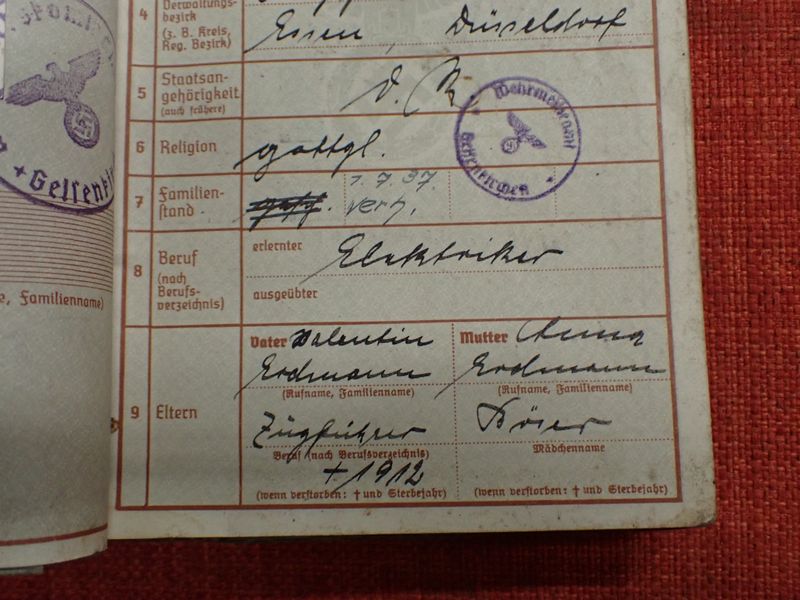 4 Verwaltungs-
bezirk
(z. B. Kreis,
Reg. Bezirk)
Essen, Düsseldorf
5 Staatsan-
gehörigkeit
(auch frühere)
d. R.
Wehrmeldeamt
Gelsenkirchen
+ Gelsenki
6 Religion
gottgl.
7 Familien-
stand
1.7.37.
verh.
8 Beruf
(nach
Berufs-
verzeichnis)
erlernter
Elektriker
ausgeübter
e, Familienname)
9 Eltern
Vater Valentin
Erdmann
(Rufname, Familienname)
Zugführer
Beruf (nach Berufsverzeichnis)
+ 1912
(wenn verstorben: † und Sterbejahr)
Mutter Anna
Erdmann
(Rufname, Familienname)
Böser
Mädchenname
(wenn verstorben: † und Sterbejahr)